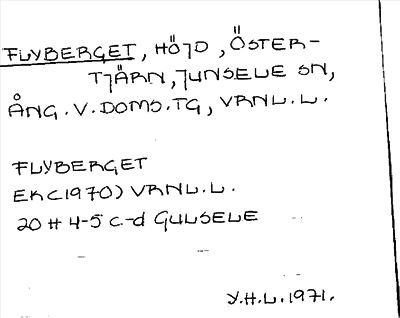 FLYBERGET, HÖJD, ÖSTER-
TJÄRN, JUNSELE SN,
ÅNG. V. DOMS. TG, VRNL.L.
FLYBERGET
EK (1970) VRNL.L.
20 H 4-5 c-d GULSELE
Y.H.L. 1971.